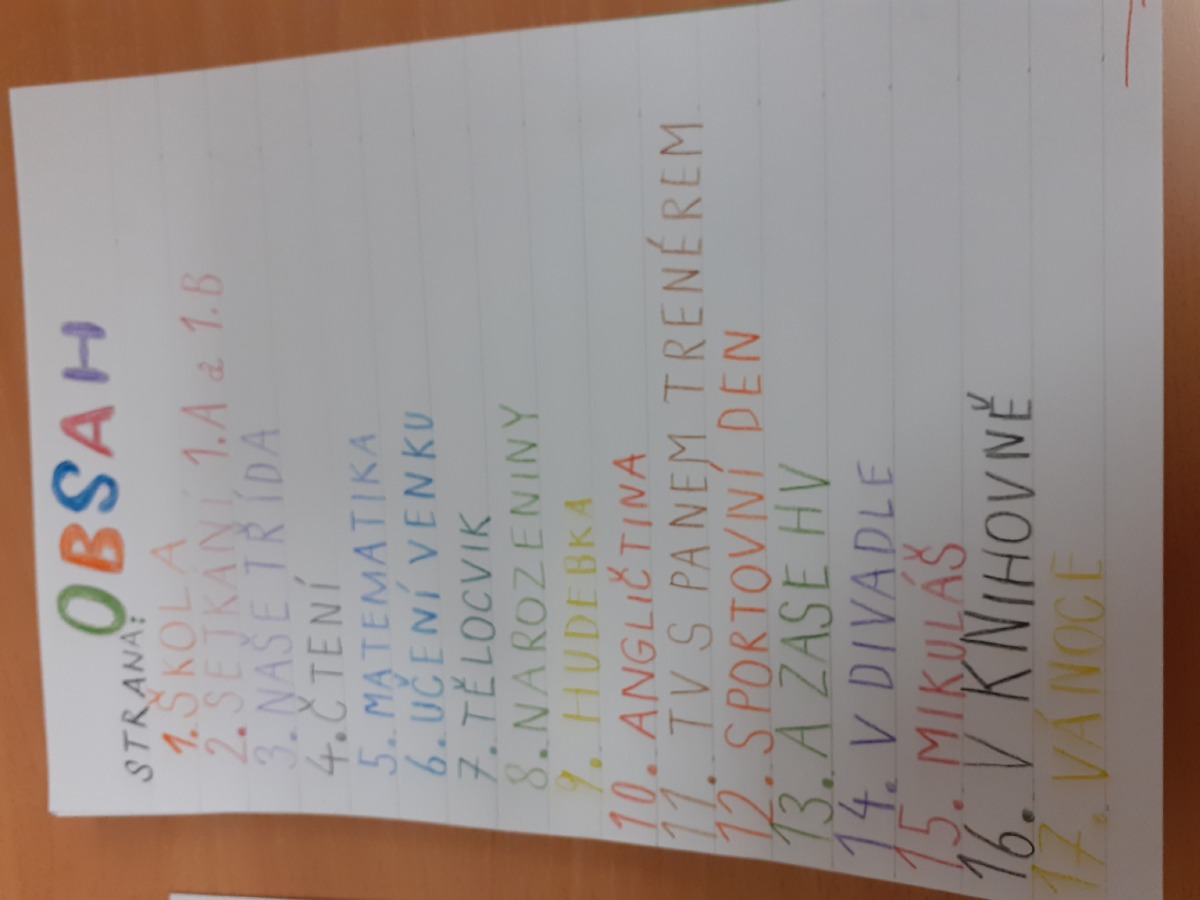 OBSAH
STRANA:
1. ŠKOLA
2. SETKÁNÍ 1.A a 1.B
3. NAŠE TŘÍDA
4. ČTENÍ
5. MATEMATIKA
6. UČENÍ VENKU
7. TĚLOCVIK
8. NAROZENINY
9. HUDEBKA
10. ANGLIČTINA
11. TV S PANEM TRENÉREM
12. SPORTOVNÍ DEN
13. A ZASE HV
14. V DIVADLE
15. MIKULÁŠ
16. V KNIHOVNĚ
17. VÁNOCE